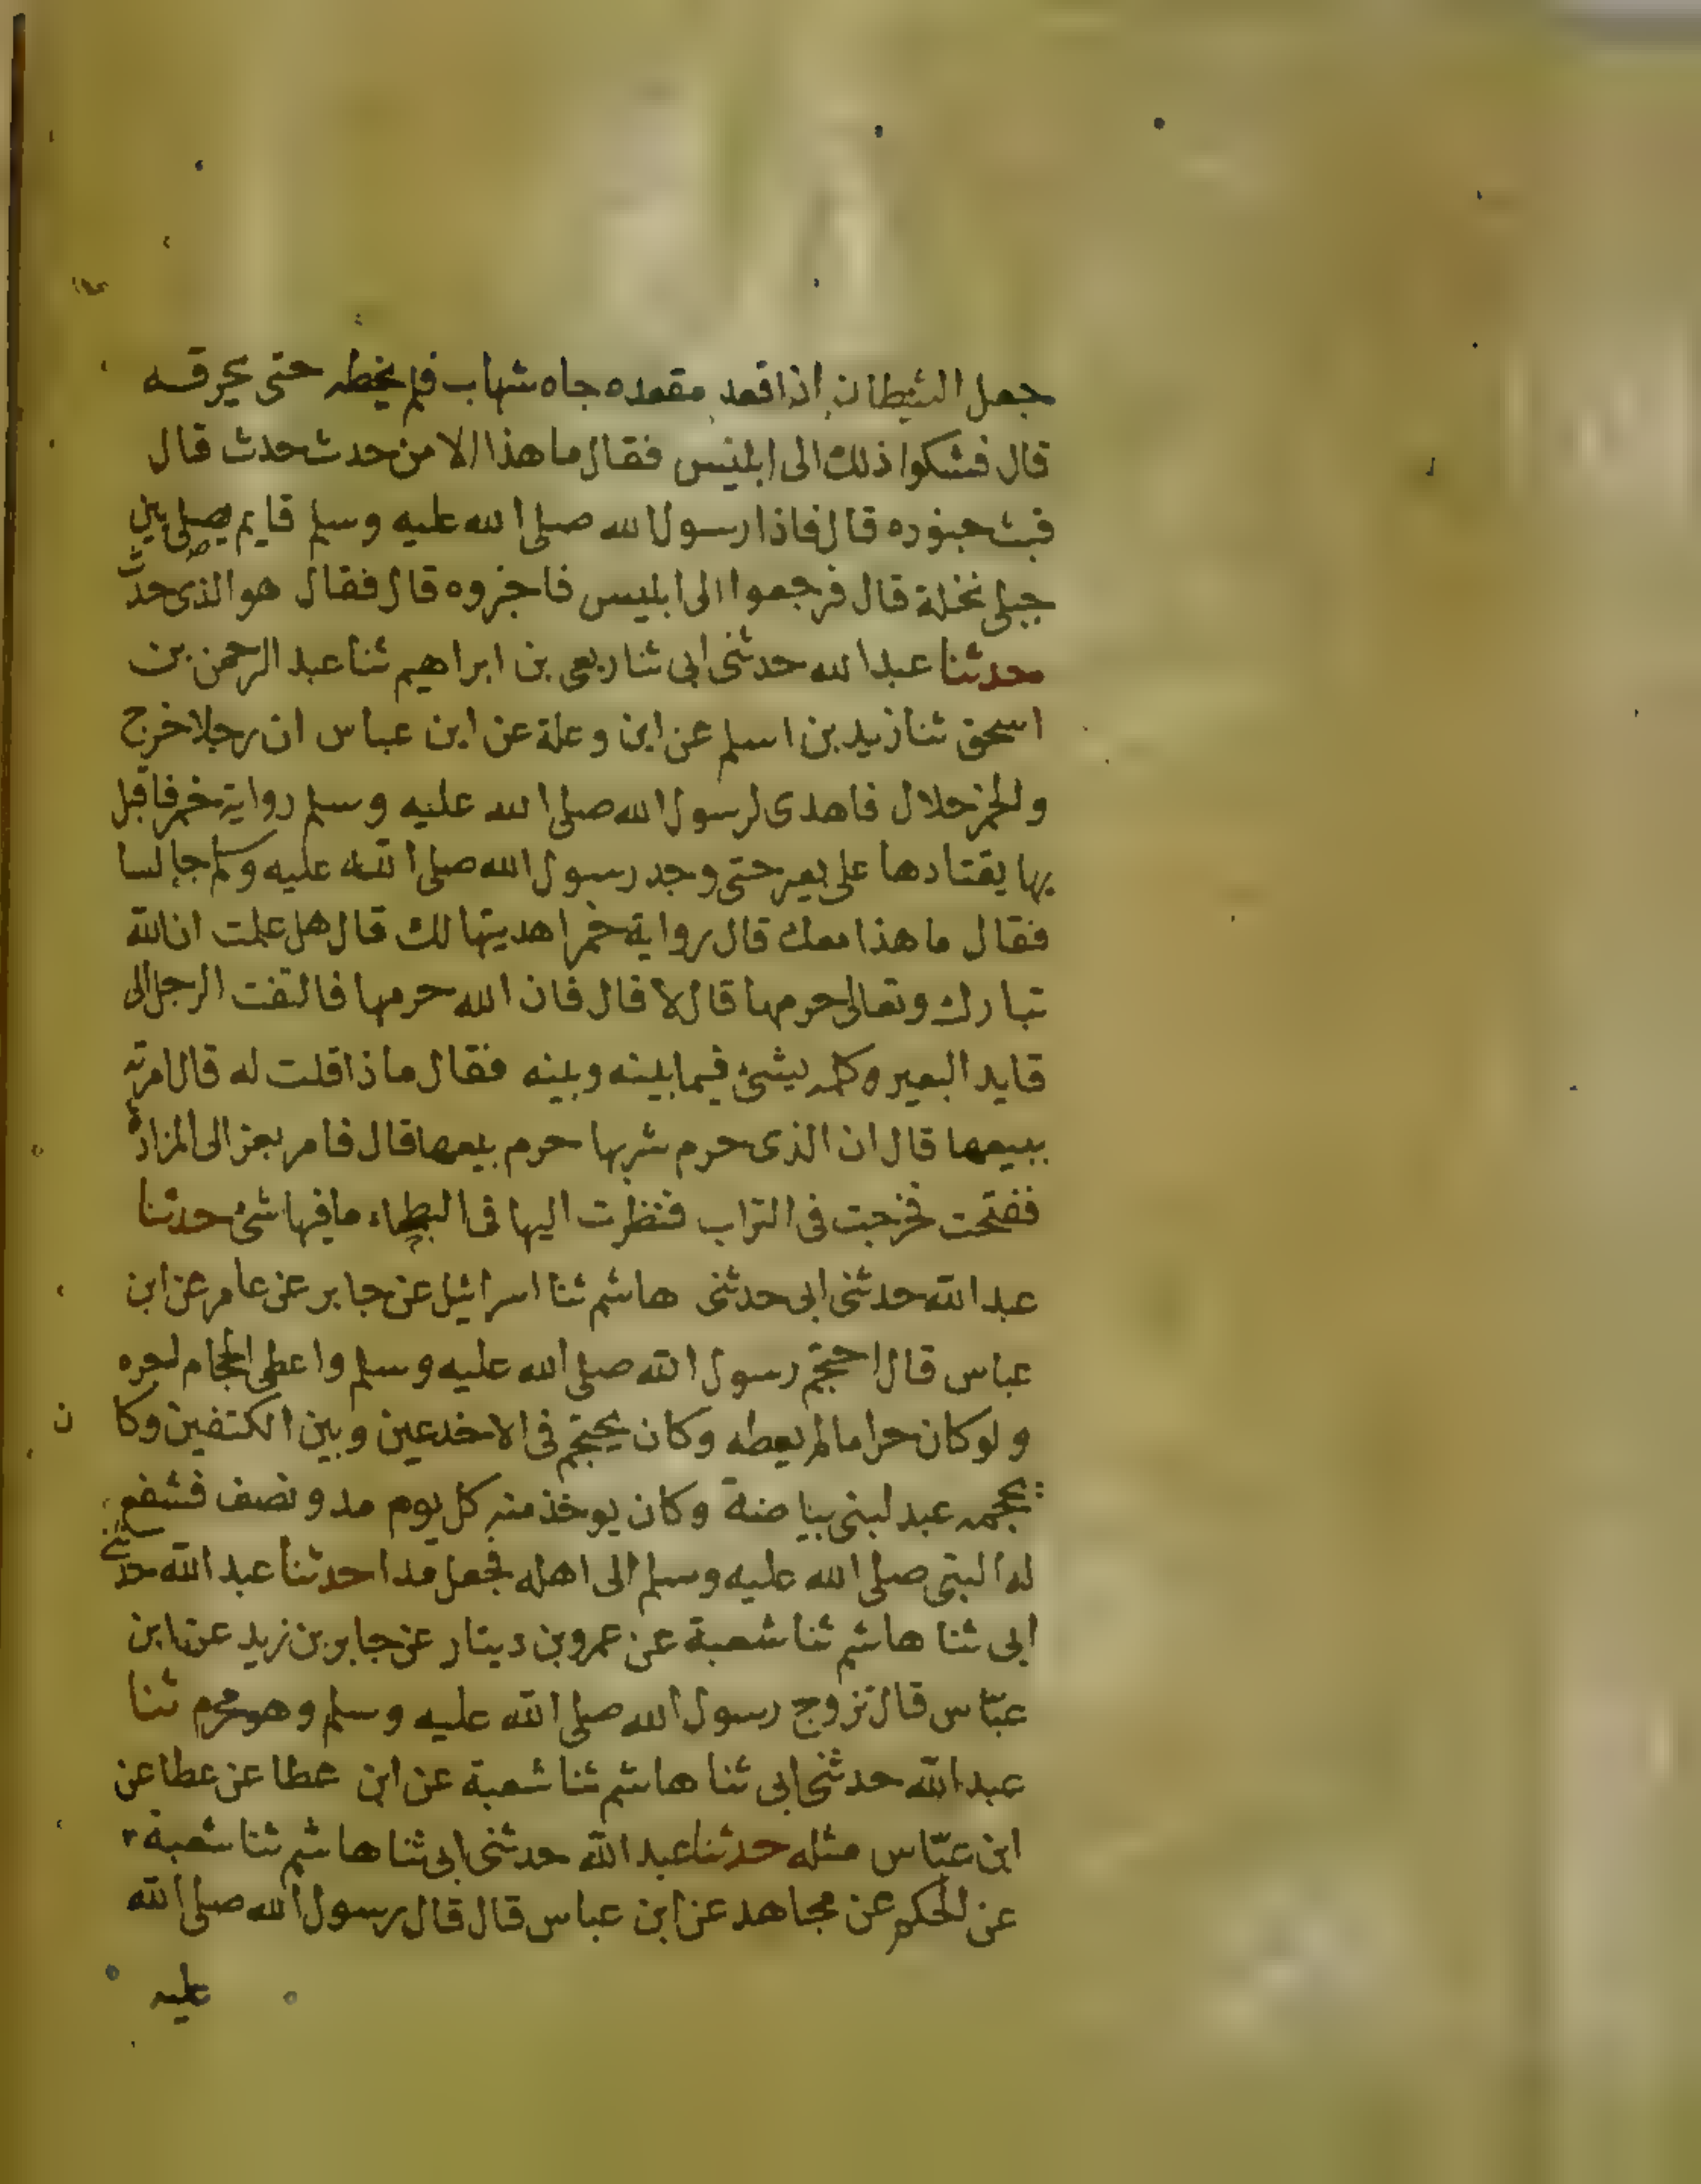 جعل الشيطان اذا قعد مقعده جاه شهاب فلم يخطه حتى يحرقه
قال فشكوا ذلك الى ابليس فقال ما هذا الا من حدث حدث قال
فبث جنوده قال فاذا رسول الله صلى الله عليه وسلم قايم يصلى بين
جبلى نخلة قال فرجعوا الى ابليس فاخبروه قال فقال هو الذى حدث
حدثنا عبد الله حدثنى ابى ثنا ربعى بن ابراهيم ثنا عبد الرحمن بن
اسحق ثنا زيد بن اسلم عن ابن وعلة عن ابن عباس ان رجلا خرج
والخمر حلال فاهدى لرسول الله صلى الله عليه وسلم رواية خمر فاقبل
بها يقتادها على بعير حتى وجد رسول الله صلى الله عليه وسلم جالسا
فقال ما هذا معك قال رواية خمر اهديتها لك قال هل علمت ان الله
تبارك وتعالى حرمها قال لا قال فان الله حرمها فالتفت الرجل الى
قايد البعير وكلمه بشئ فيما بينه وبينه فقال ماذا قلت له قال امرته
ببيعها قال ان الذى حرم شربها حرم بيعها قال فامر بعز الى المزادة
ففتحت فخرجت فى التراب فنظرت اليها فى البطحاء ما فيها شئ حدثنا
عبد الله حدثنى ابى حدثنى هاشم ثنا اسرائيل عن جابر عن عامر عن ابن
عباس قال احتجم رسول الله صلى الله عليه وسلم واعطى الحجام اجره
ولو كان حراما لم يعطه وكان يحتجم فى الاخدعين وبين الكتفين وكان
يحجمه عبد لبنى بياضة وكان يوخذ منه كل يوم مد ونصف فشفع
له النبى صلى الله عليه وسلم الى اهله فجعل مدا حدثنا عبد الله حدثنى
ابى ثنا هاشم ثنا شعبة عن عمرو بن دينار عن جابر بن زيد عن ابن
عبّاس قال تزوج رسول الله صلى الله عليه وسلم وهو محرم ثنا
عبد الله حدثنى ابى ثنا هاشم ثنا شعبة عن ابن عطا عن عطا عن
ابن عبّاس مثله حدثنا عبد الله حدثنى ابى ثنا هاشم ثنا شعبة
عن الحكم عن مجاهد عن ابن عباس قال قال رسول الله صلى الله
عليه